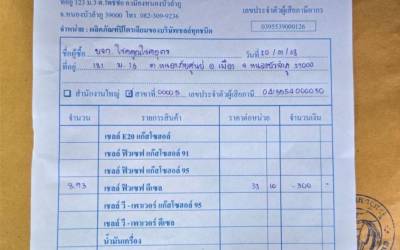 ที่อยู่ 123 ม.3 ต.โพธิ์ชัย อ.เมืองหนองบัวลำภู
จ.หนองบัวลำภู 39000 โทร. 082-309-9236
เลขประจำตัวผู้เสียภาษีอากร
0395539000126
จำหน่าย : ผลิตภัณฑ์ปิโตรเลียมของบริษัทเชลล์ทุกชนิด
ชื่อผู้ซื้อ บจก. วันที่
ที่อยู่ ม. 16 ต. อ. เมือง จ. หนองบัวลำภู 39000
สำนักงานใหญ่ สาขาที่ เลขประจำตัวผู้เสียภาษี
จำนวน รายการสินค้า ราคาต่อหน่วย จำนวนเงิน
เชลล์ E20 แก๊สโซฮอล์
เชลล์ ฟิวเซฟ แก๊สโซฮอล์ 91
เชลล์ ฟิวเซฟ แก๊สโซฮอล์ 95
เชลล์ ฟิวเซฟ ดีเซล 10 -300 -
เชลล์ วี - เพาเวอร์ แก๊สโซฮอล์ 95
เชลล์ วี - เพาเวอร์ ดีเซล
น้ำมันเครื่อง